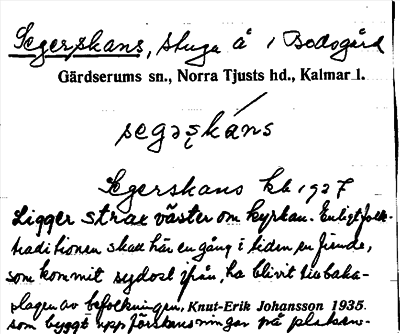 Segerskans, stuga å 1 Bodsgård
Gärdserums sn., Norra Tjusts hd., Kalmar l.
segəʂkáns
Segerskans kb 1927
Ligger strax väster om kyrkan. Enligt folk-
traditionen skall här en gång i tiden en fiende,
som kommit sydost ifrån, ha blivit tillbaka-
slagen av befolkningen, Knut-Erik Johansson 1935.
som byggt upp förskansningar på platsen.